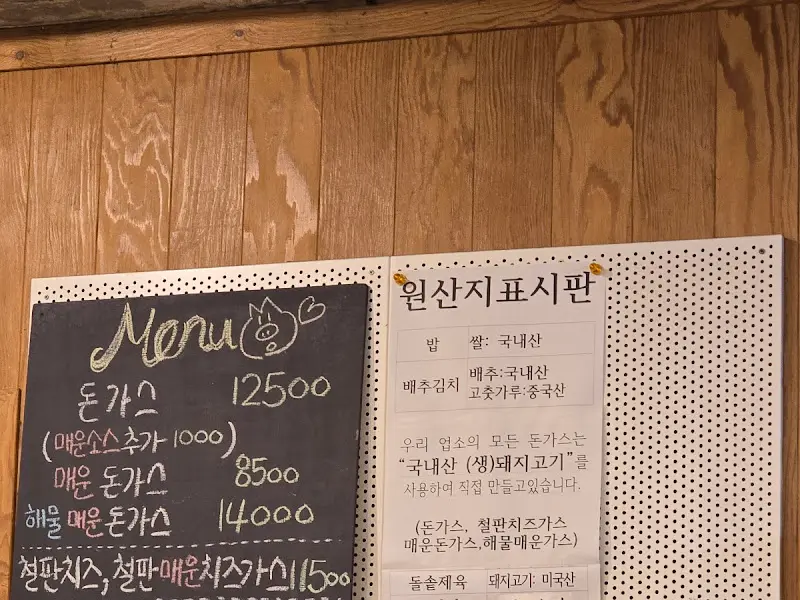 Menu
돈가스 12500
(매운소스추가 1000)
매운 돈가스 8500
해물 매운돈가스 14000
철판치즈, 철판매운치즈가스 11500
원산지표시판
밥 쌀: 국내산
배추김치 배추:국내산
고춧가루:중국산
우리 업소의 모든 돈가스는
“국내산 (생)돼지고기”를
사용하여 직접 만들고있습니다.
(돈가스, 철판치즈가스
매운돈가스,해물매운가스)
돌솥제육 돼지고기: 미국산